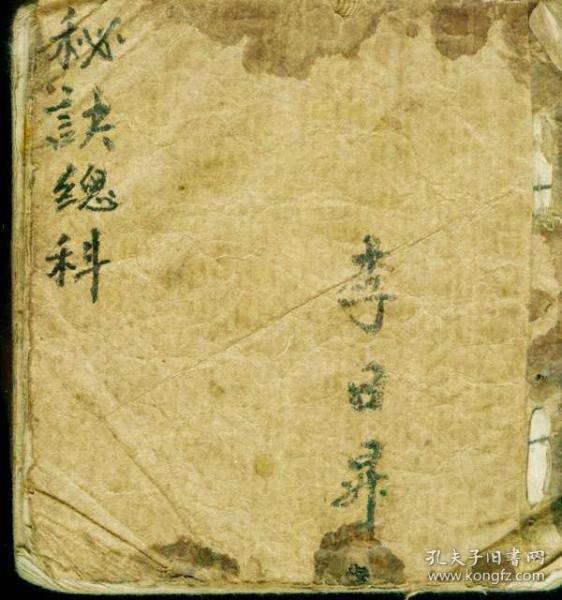 秘訣總科
李日昇
孔夫子旧书网
www.kongfz.com